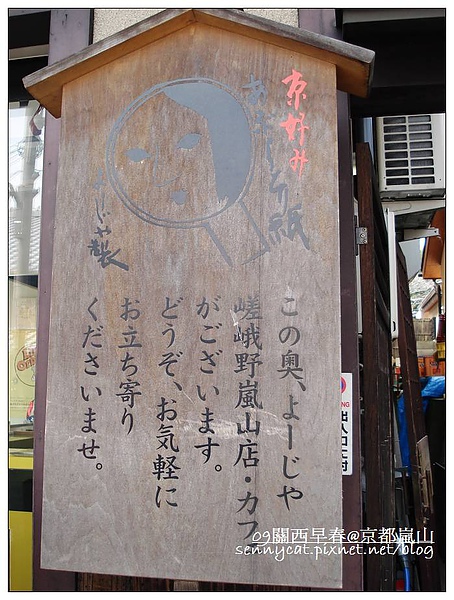 京好み
あぶらとり紙
よーじや製
この奥、よーじや
嵯峨野嵐山店・カフ
がございます。
どうぞ、お気軽に
お立ち寄り
くださいませ。
09關西早春@京都嵐山
sennycat.pixnet.net/blog